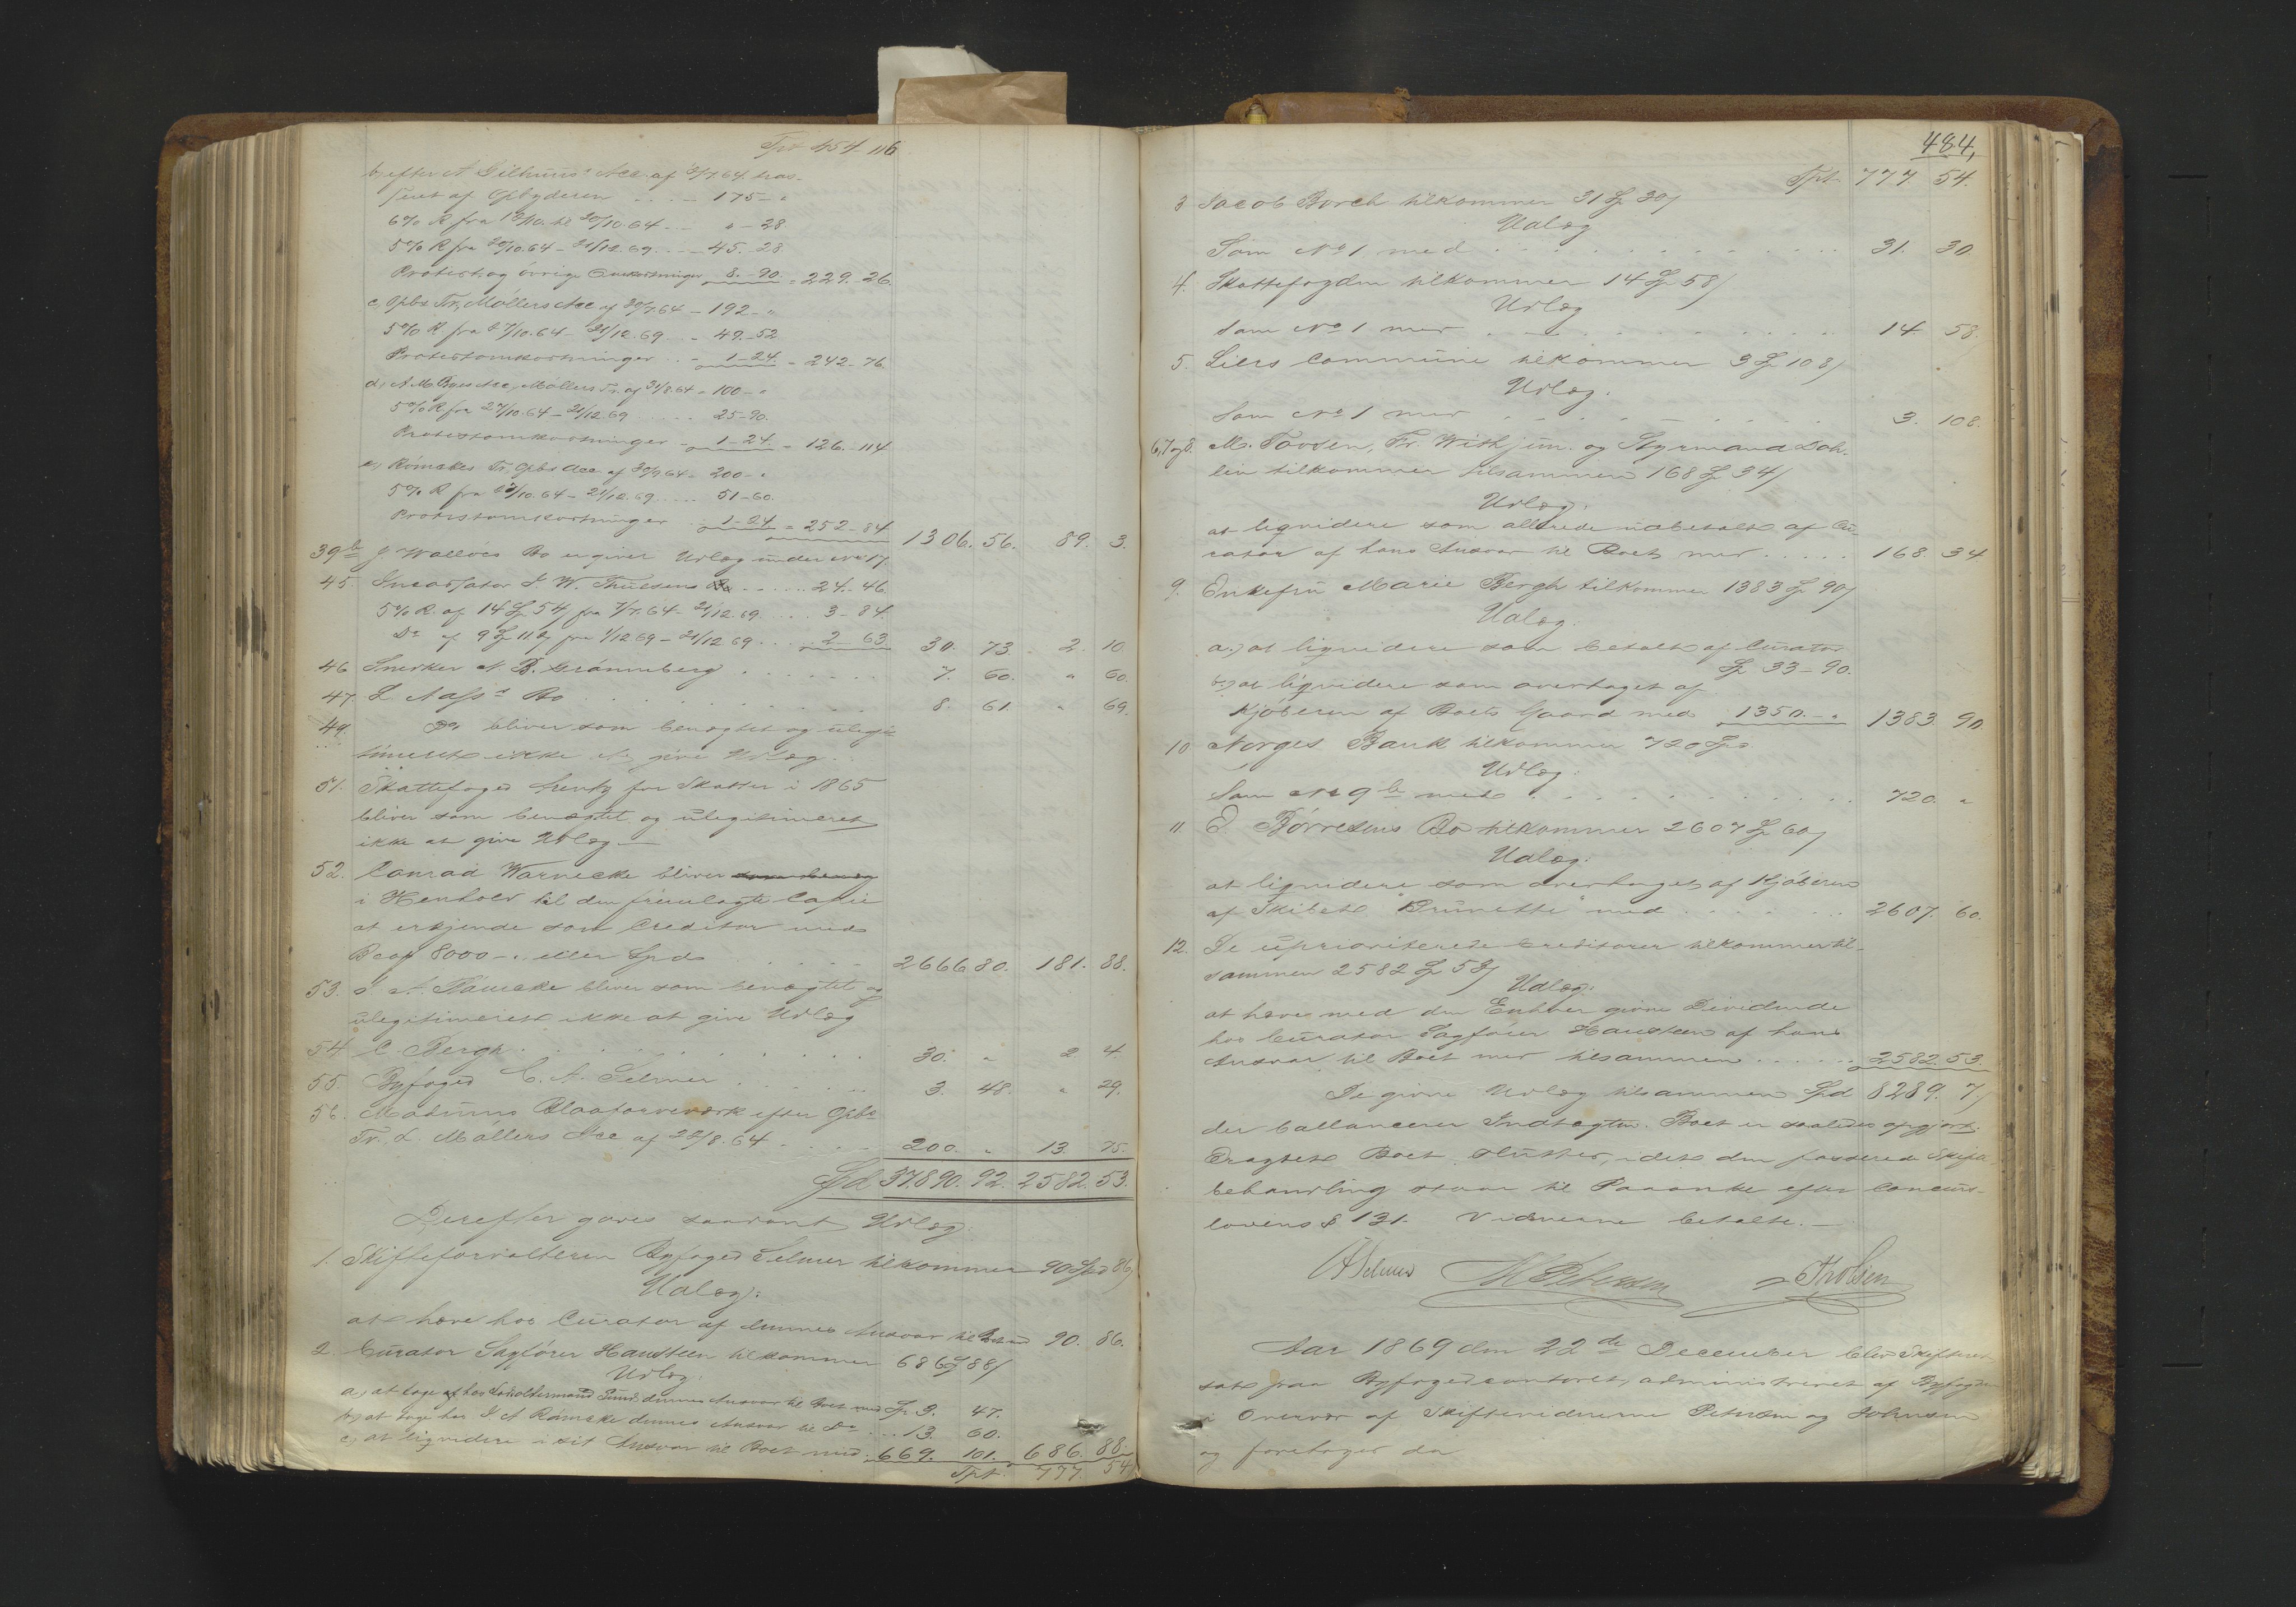 Tpt 454 116
b, efter A Gilhuus's Acc. af 12/7.64 tras-
seret af Opbyderen . . . - 175 - "
6% R fra 12/10. til 20/10.64 - " - 28
5% R fra 20/10.64 - 21/12.69 - 45 - 28
Protest og øvrige Omkostninger 8. - 90. = 229. - 26.
c, Opbs Tr, Møllers Acc af 30/7.64 - 192 - "
5% R fra 27/10.64 - 21/12.69 - 49. - 52
Protestomkostninger . . - 1 - 24. = 242 - 76
d, A. M. Acc, Møllers Tr. af 31/8.64 - 100 - "
5% R. fra 27/10.64 - 21/12.69 . . . . 25 - 90.
Protestomkostninger - 1 - 24. = 126. - 114
e, Rømckes Tr, Opbs Acc af 30/9.64 - 200 - "
5% R fra 27/10.64 - 21/12.69 . . . . 51 - 60.
Protestomkostninger . 1 - 24 = 252 - 84 1306. 56. 89. 3.
39b J Walløes Bo er given Udlæg under No 17
45. Incassator J. W. Thuesens Bo . . . . . 24. - 46.
5% R af 14 Sp 54 / fra 7/7.64 - 21/12.69 . . . . 3 - 84.
Do af 9 Sp 112 / fra 1/12 69 - 21/12 69 . . . . 2 - 63 30. 73. 2. 10
46 Snedker N. B. Grønneberg . . . . . . . 7. 60. " 60.
47. L Aass's Bo . . . . . . . . . . 8. 61. " 69.
49. Do bliver som benægtet og ulegi-
timeret ikke at give Udlæg.
51. Skattefoged Arentz for Skatter i 1865
bliver som benægtet og ulegitimeret
ikke at give Udlæg —
52. Conrad Warnecke bliver som benæg
i Henhold til den fremlagte Copie
at erkjende som Creditor med
Bco/ 8000 - ". eller Spd . . . . . 2666 80. 181. 88.
53. J. A. Rømcke bliver som benægtet og
ulegitimeret ikke at give Udlæg
54 C. Bergh . . . . . . . . . . . . 30. " 2 4
55. Byfoged C. A. Selmer . . . . . . . 3. 48. " 29.
56. Modums Blaafarveværk efter Opbs
Tr. L. Møllers Acc af 22/8.64 . . . 200. " 13. 75.
Spd 37.890. 92. 2582. 53.
Derefter gaves saadant Udlæg:
1. Skifteforvalteren Byfoged Selmer tilkommer 90 Spd 86/
Udlæg:
at hæve hos Curator af dennes Ansvar til Boet med 90. 86.
2. Curator Sagfører Hansteen tilkommer 686 Sp 88/
Udlæg:
a, at tage hos dennes Ansvar til Boet med Sp 3. 47.
b, at tage hos J A Rømcke dennes Ansvar til Do . . . 13. 60.
c, at liqvidere i sit Ansvar til Boet med . 669. 101. 686. 88.
Tpt. 777. 54
484,
Tpt. 777 54.
3 Jacob Borch tilkommer 31 Sp 30/
Udlæg
Som No 1 med . . . . . . . . . . . . . 31. 30
4. Skattefogden tilkommer 14 Sp 58/
Udlæg
Som No 1 med . . . . . . . . . . . . 14. 58.
5. Liers Commune tilkommer 3 Sp 108/
Udlæg.
Som No 1 med . . . . . . . . . 3. 108.
6, 7 og 8. M. Tovsen, Fr. Wisth jun. og Styrmand Doh-
lin tilkommer tilsammen 168 Sp 34/
Udlæg.
at liqvidere som allerede udbetalt af Cu-
rator af hans Ansvar til Boet med . . . . . 168. 34.
9. Enkefru Marie Bergh tilkommer 1383 Sp 90/
Udlæg.
a.) at liqvidere som betalt af Curator
Sp 33 - 90.
b.) at liqvidere som overtaget af
Kjøberen af Boets Gaard med 1350. - " 1383. 90.
10 Norges Bank tilkommer 720 Spd
Udlæg:
Som No 9 b med . . . . . . . . . . . . 720. "
11 E. Børresens Bo tilkommer 2607 Sp 60/
Udlæg:
at liqvidere som overtaget af Kjøberen
af Skibet "Brunette" med . . . . . . . 2607. 60.
12. De uprioriterede Creditorer tilkommer til-
sammen 2582 Sp 53/
Udlæg:
at hæve med den Enhver givne Dividende
hos Curator Sagfører Hansteen af hans
Ansvar til Boet med tilsammen . . . . . . 2582. 53.
De givne Udlæg tilsammen Spd 8289. 7/
der ballancerer Indtægten. Boet er saaledes opgjort.
Eragtet Boet sluttet, idet den passerede Skifte-
behandling staar til Paaanke efter Concurs-
lovens § 131. Vidnerne betalte. —
A Selmer M Petersen Johnsen
Aar 1869 den 22de December blev Skifteret
sat paa Byfogedcontoret, administreret af Byfogden
i Overvær af Skiftevidnerne Petersen og Johnsen
og foretoges da